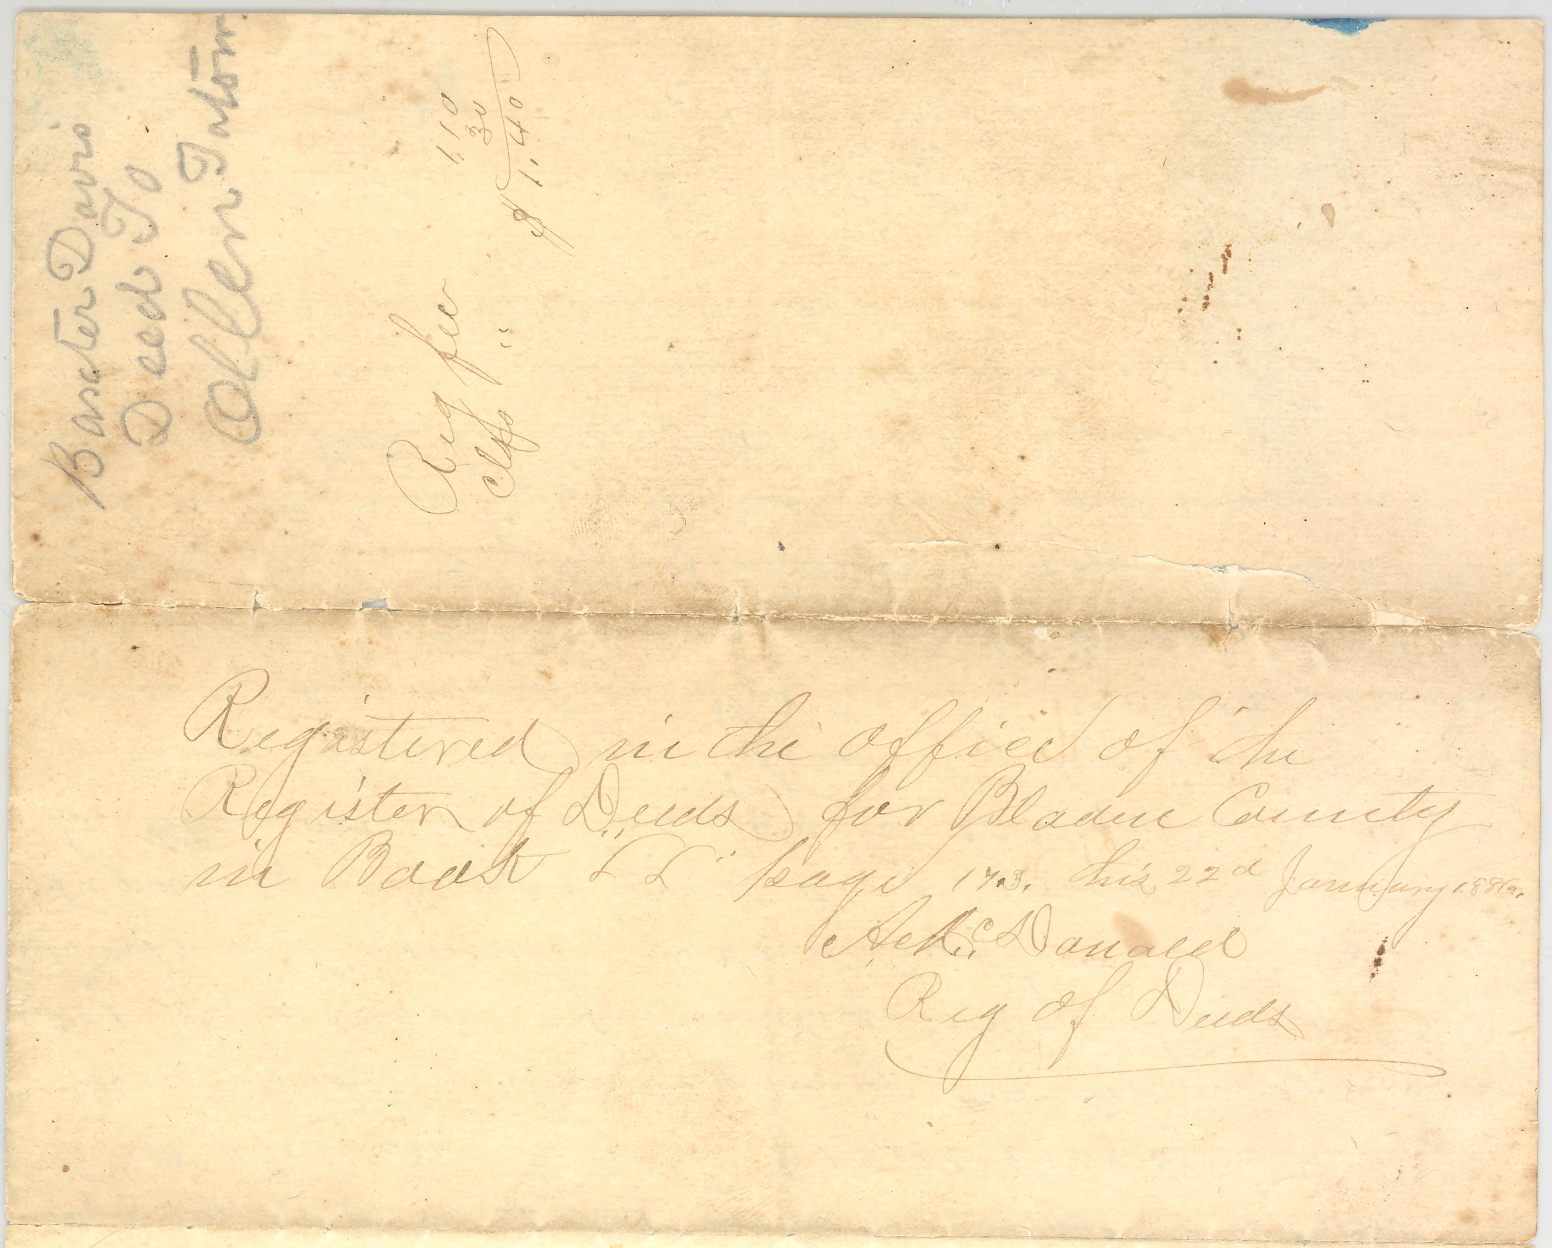 Baxter Davis
Deed To
Allen Tatom
Reg fee 1.10
Clks " 30
$ 1.40
Registered in the office of the
Register of Deeds for Bladen County
in Book "LL" page 173. this 22d January
A McDonald
Reg of Deeds